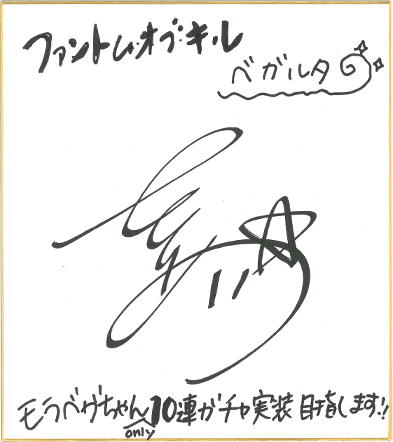 ファントム・オブ・キル
ベガルタ
モラベガちゃん10連ガチャ実装目指します!!
only